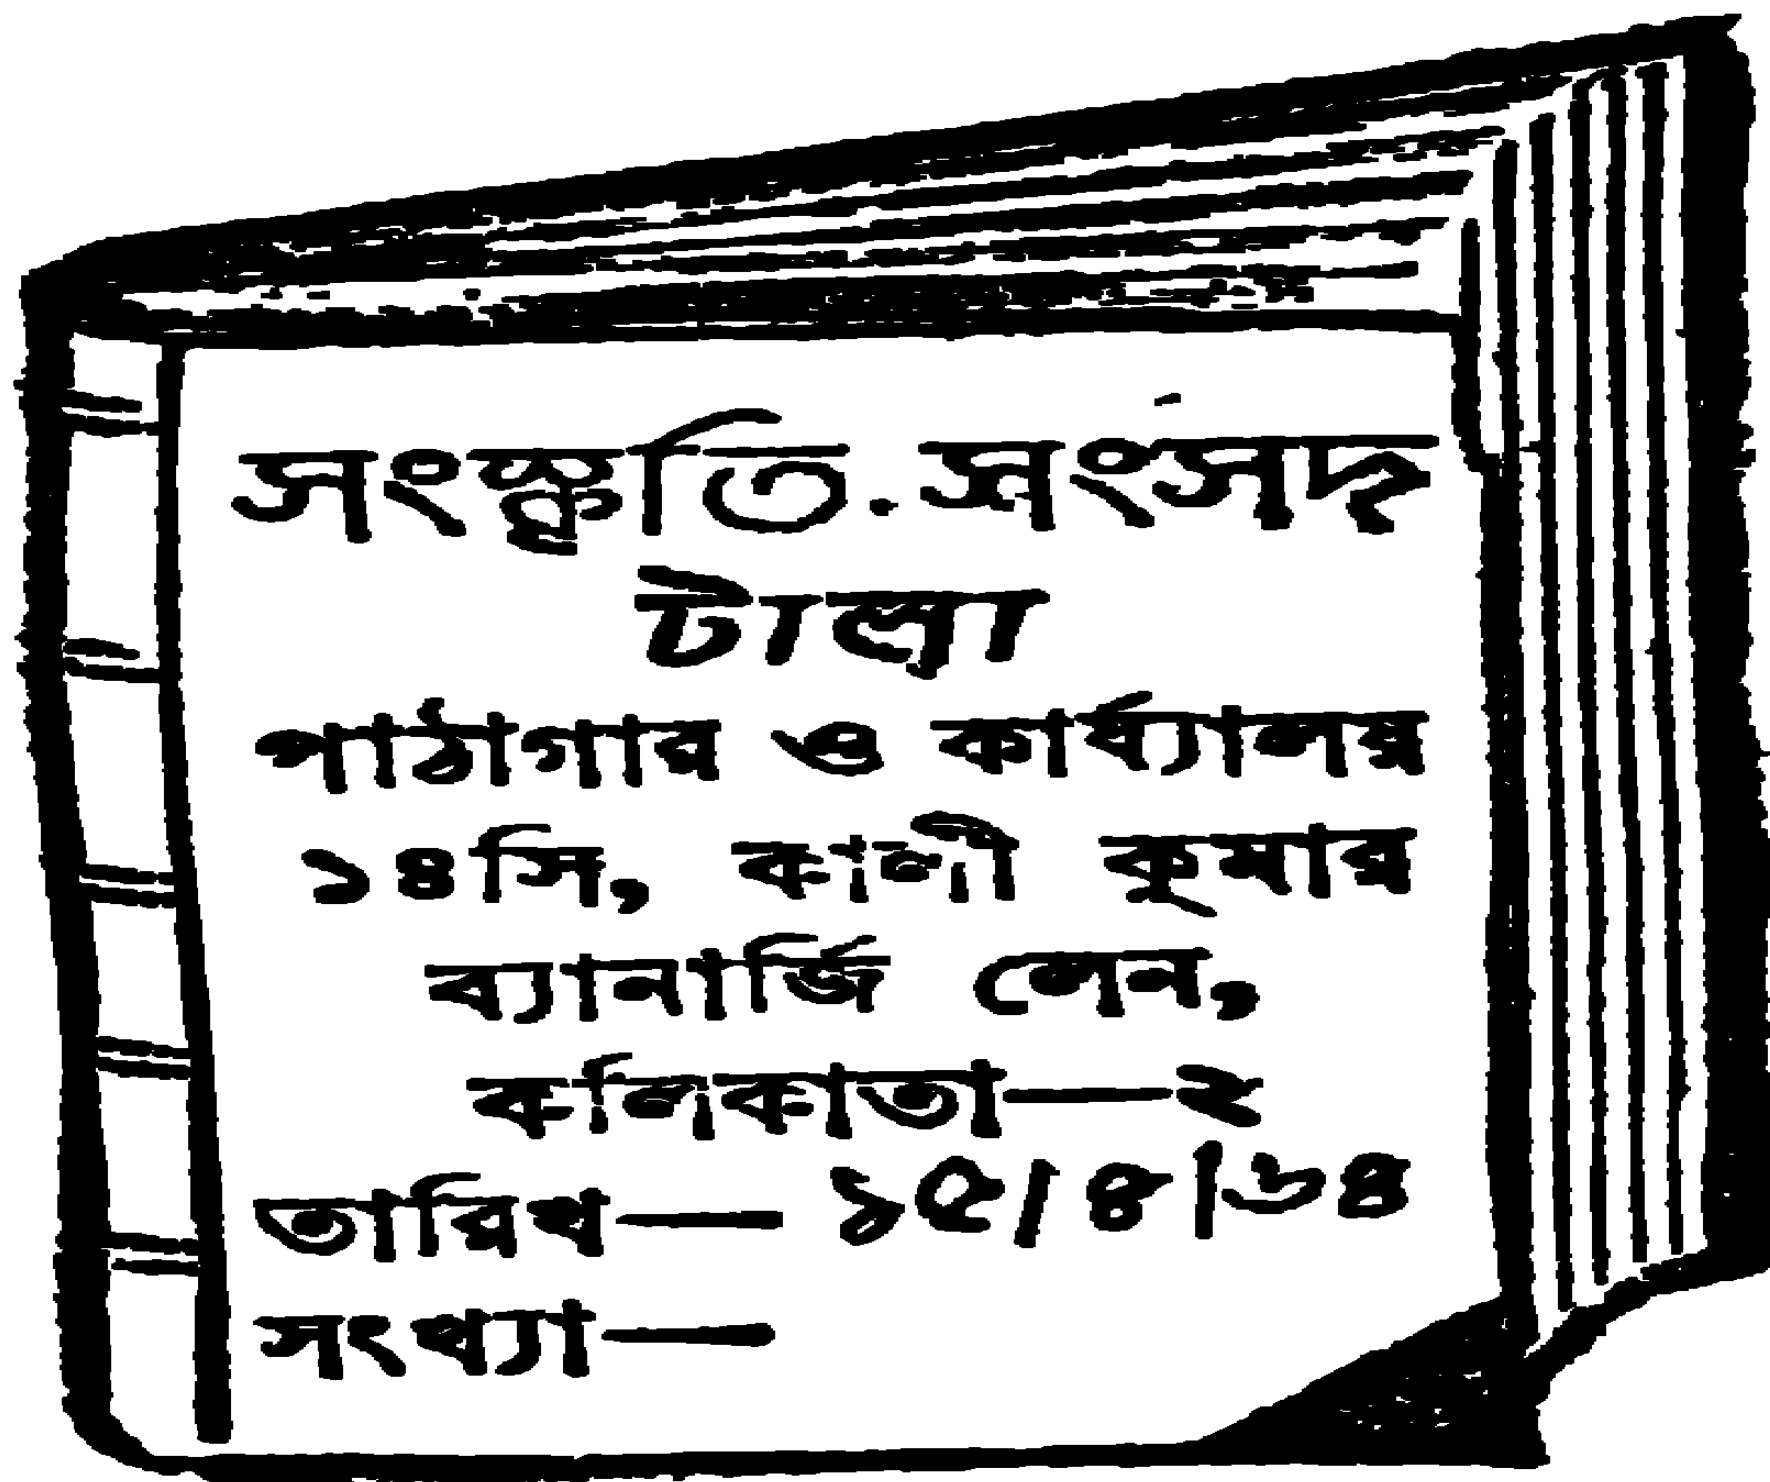 সংস্কৃতি. সংসদ
টালা
পাঠাগার ও কার্য্যালয়
১৪সি, কালী কুমার
ব্যানার্জি লেন,
কলিকাতা—২
তারিখ— ১৫/৪/৬৪
সংখ্যা—